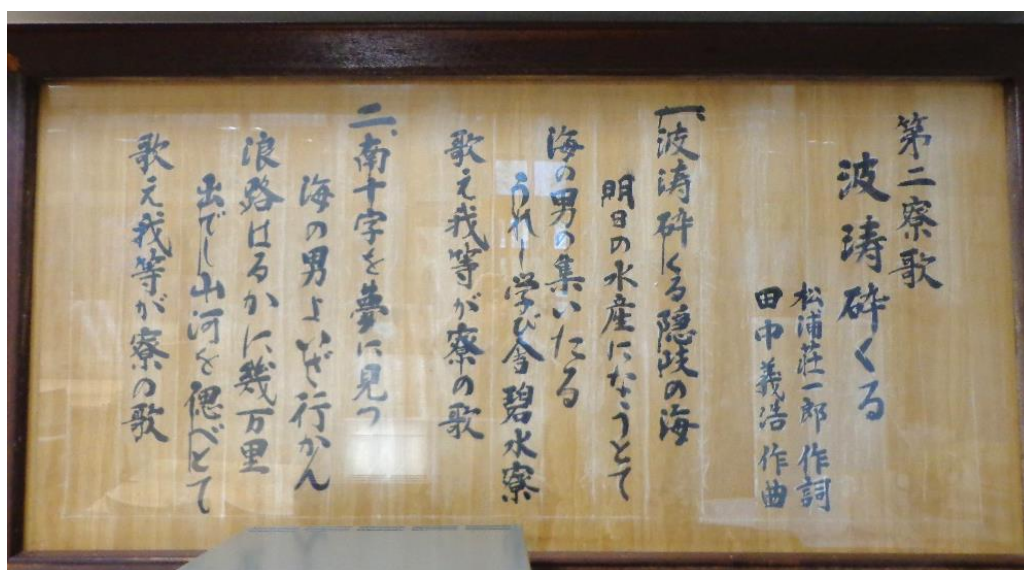 第二寮歌
波涛砕くる
松浦荘一郎 作詞
田中義浩 作曲
一、波涛砕くる隠岐の海
明日の水産になうとて
海の男の集いたる
うれし学び舎碧水寮
歌え我等が寮の歌
二、南十字を夢に見つ
海の男よいざ行かん
浪路はるかに幾万里
出でし山河を偲べとて
歌え我等が寮の歌